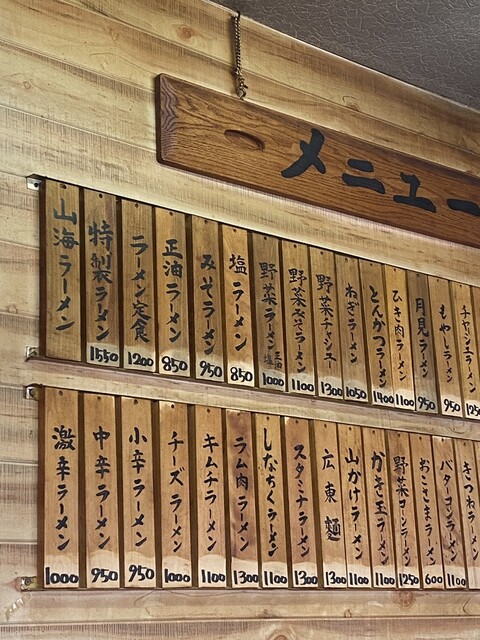 メニュー
山海ラーメン
特製ラーメン 1550
ラーメン定食 1200
正油ラーメン 850
みそラーメン 950
塩ラーメン 850
野菜ラーメン 正油 塩 1000
野菜みそラーメン 1100
野菜チャンシュー 1300
ねぎラーメン 1050
とんかつラーメン 1400
ひき肉ラーメン 1100
月見ラーメン 950
もやしラーメン 950
チャシューラーメン
激辛ラーメン 1000
中辛ラーメン 950
小辛ラーメン 950
チーズラーメン 1000
キムチラーメン 1100
ラム肉ラーメン 1300
しなちくラーメン 1100
スタミナラーメン 1300
広東麺 1300
山かけラーメン 1100
かき玉ラーメン 1100
野菜コーンラーメン 1250
おこさまラーメン 600
バターコーンラーメン 1100
きつねラーメン